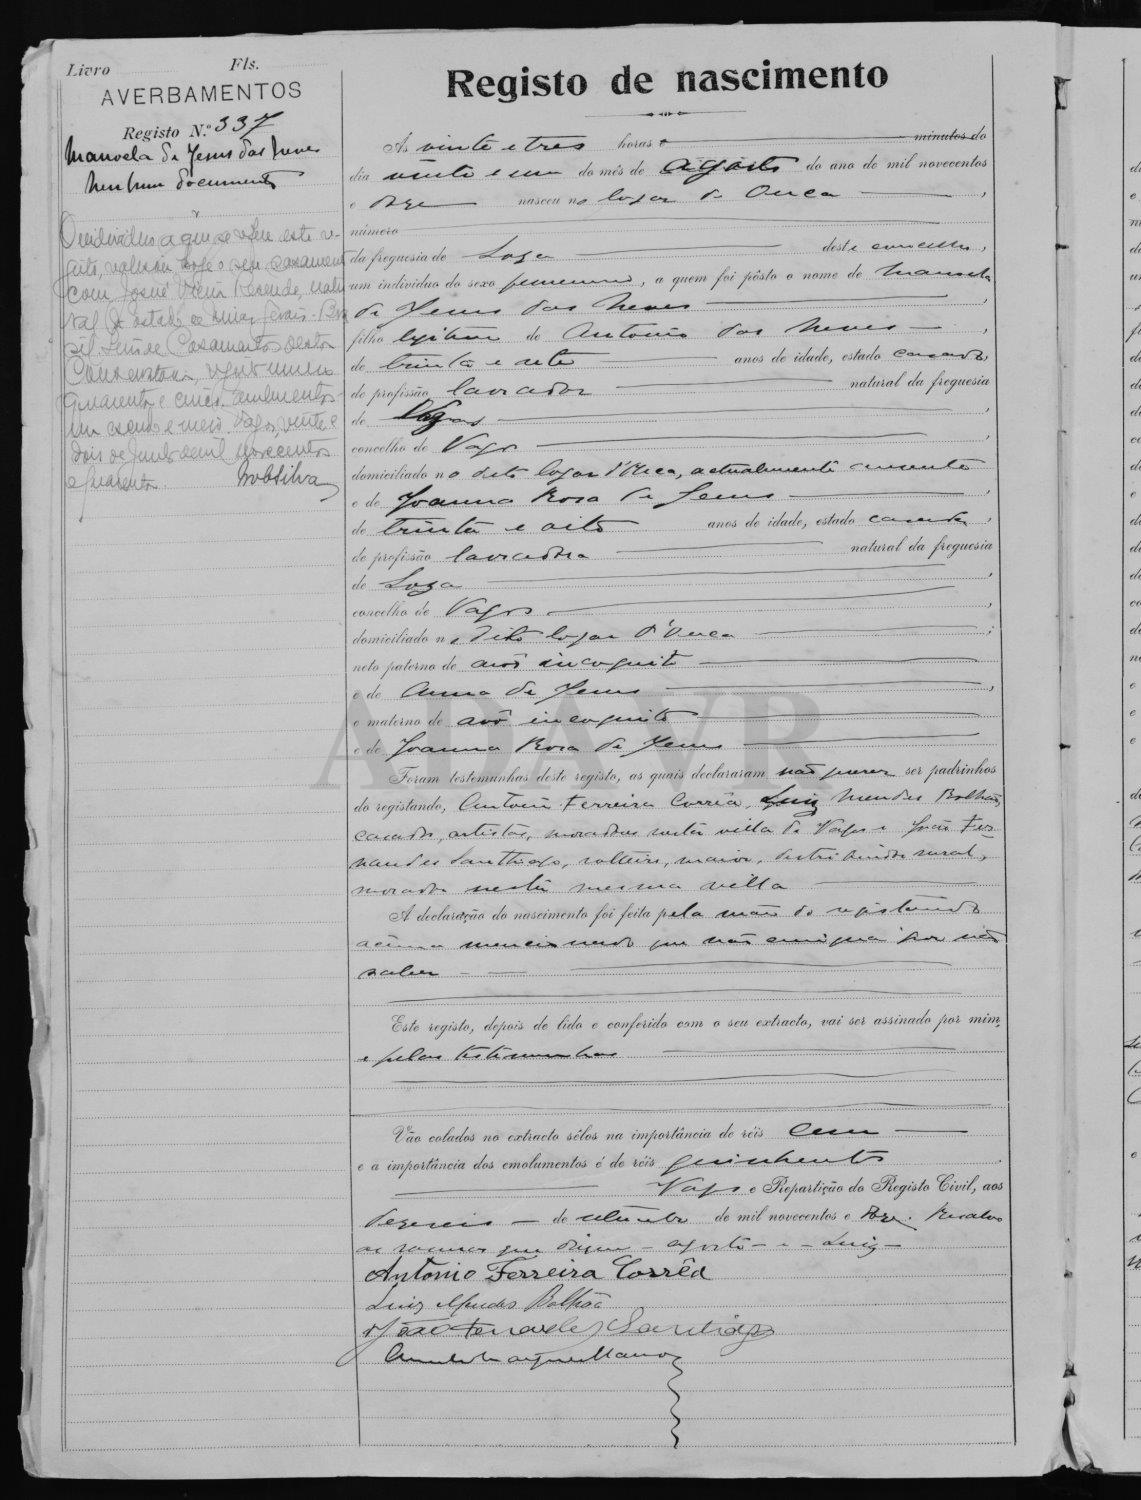 Livro Fls.
AVERBAMENTOS
Registo N.º 337
Manoela de Jesus das Neves
Nenhum documento
O individuo a que se refere este re-
gisto, realisou hoje o seu casamento
com Josué Vieira Resende, natu
ral do estado de Minas Gerais - Bra
sil. de Casamentos desta
Conservatoria, numero
quarenta e cinco. Emolumentos
um escudo e meio. Vagos, vinte e
dois de Junho de mil novecentos
e quarenta.
Registo de nascimento
Ás vinte e tres horas e minutos do
dia vinte e um do mês de Agosto do ano de mil novecentos
e doze nasceu no logar de Ouca ,
número
da freguesia de Soza deste concelho,
um indivíduo do sexo femenino, a quem foi pôsto o nome de Manoela
de Jesus das Neves ,
filho legitimo de Antonio das Neves ,
de trinta e sete anos de idade, estado casado,
de profissão lavrador natural da freguesia
de Vagos ,
concelho de Vagos ,
domiciliado no dito logar d'Ouca, actualmente ausente
e de Joanna Rosa de Jesus ,
de trinta e oito anos de idade, estado casada,
de profissão lavradora natural da freguesia
de Soza ,
concelho de Vagos ,
domiciliado no dito logar d'Ouca ;
neto paterno de avô incognito
e de Anna de Jesus ,
e materno de avô incognito
e de Joanna Rosa de Jesus
Foram testemunhas deste registo, as quais declararam não querer ser padrinhos
do registando, Antonio Ferreira Corrêa, Luiz Mendes Bolhão,
casados, artistas, moradores nesta villa de Vagos e João Fer-
nandes Santhiago, solteiro, maior, distribuidor rural,
morador nesta mesma villa
A declaração do nascimento foi feita pela mãe do registando
acima mencionado que não assigna por não
saber
Este registo, depois de lido e conferido com o seu extracto, vai ser assinado por mim,
e pelas testemunhas
Vão colados no extracto sêlos na importância de réis cem
e a importância dos emolumentos é de réis quinhentos
Vagos e Repartição do Registo Civil, aos
dezeseis de setembro de mil novecentos e doze. Resalvo
as rasuras que dizem - agosto - e - Luiz -
Antonio Ferreira Corrêa
Luiz Mendes Bolhão
João Fernandes Santiago
ADAVR